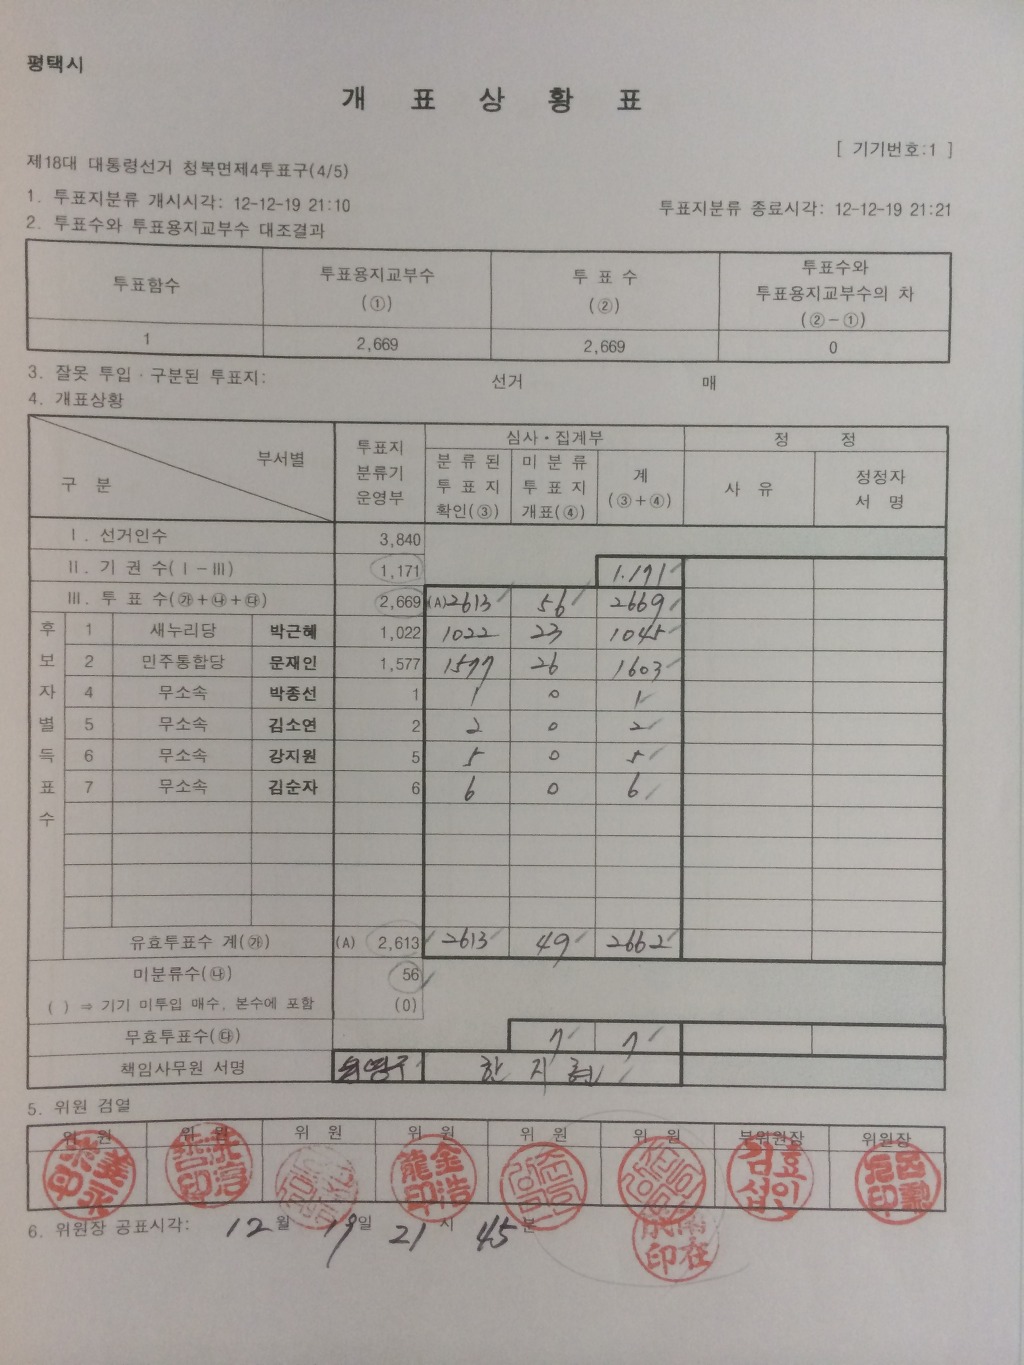 평택시
개 표 상 황 표
[ 기기번호:1 ]
제18대 대통령선거 청북면제4투표구(4/5)
1. 투표지분류 개시시각: 12-12-19 21:10 투표지분류 종료시각: 12-12-19 21:21
2. 투표수와 투표용지교부수 대조결과
투표함수 투표용지교부수 (①) 투 표 수 (②) 투표수와 투표용지교부수의 차 (②-①)
1 2,669 2,669 0
3. 잘못 투입·구분된 투표지: 선거 매
4. 개표상황
구 분 부서별 투표지 분류기 운영부 심사·집계부 정 정
분 류 된 투 표 지 확인(③) 미 분 류 투 표 지 개표(④) 계 (③+④) 사 유 정정자 서 명
Ⅰ. 선거인수 3,840
Ⅱ. 기 권 수(Ⅰ-Ⅲ) 1,171 1.171
Ⅲ. 투 표 수(㉮+㉯+㉰) 2,669 (A)2613 56 2669
후보자별득표수
1 새누리당 박근혜 1,022 1022 23 1045
2 민주통합당 문재인 1,577 1577 26 1603
4 무소속 박종선 1 1 0 1
5 무소속 김소연 2 2 0 2
6 무소속 강지원 5 5 0 5
7 무소속 김순자 6 6 0 6
유효투표수 계(㉮) (A) 2,613 2613 49 2662
미분류수(㉯) 56
( ) ⇒ 기기 미투입 매수, 본수에 포함 (0)
무효투표수(㉰) 7 7
책임사무원 서명 한 지
5. 위원 검열
위 원 위 원 위 원 위 원 위 원 위 원 부위원장 위원장
6. 위원장 공표시각: 12월 19일 21시 45분